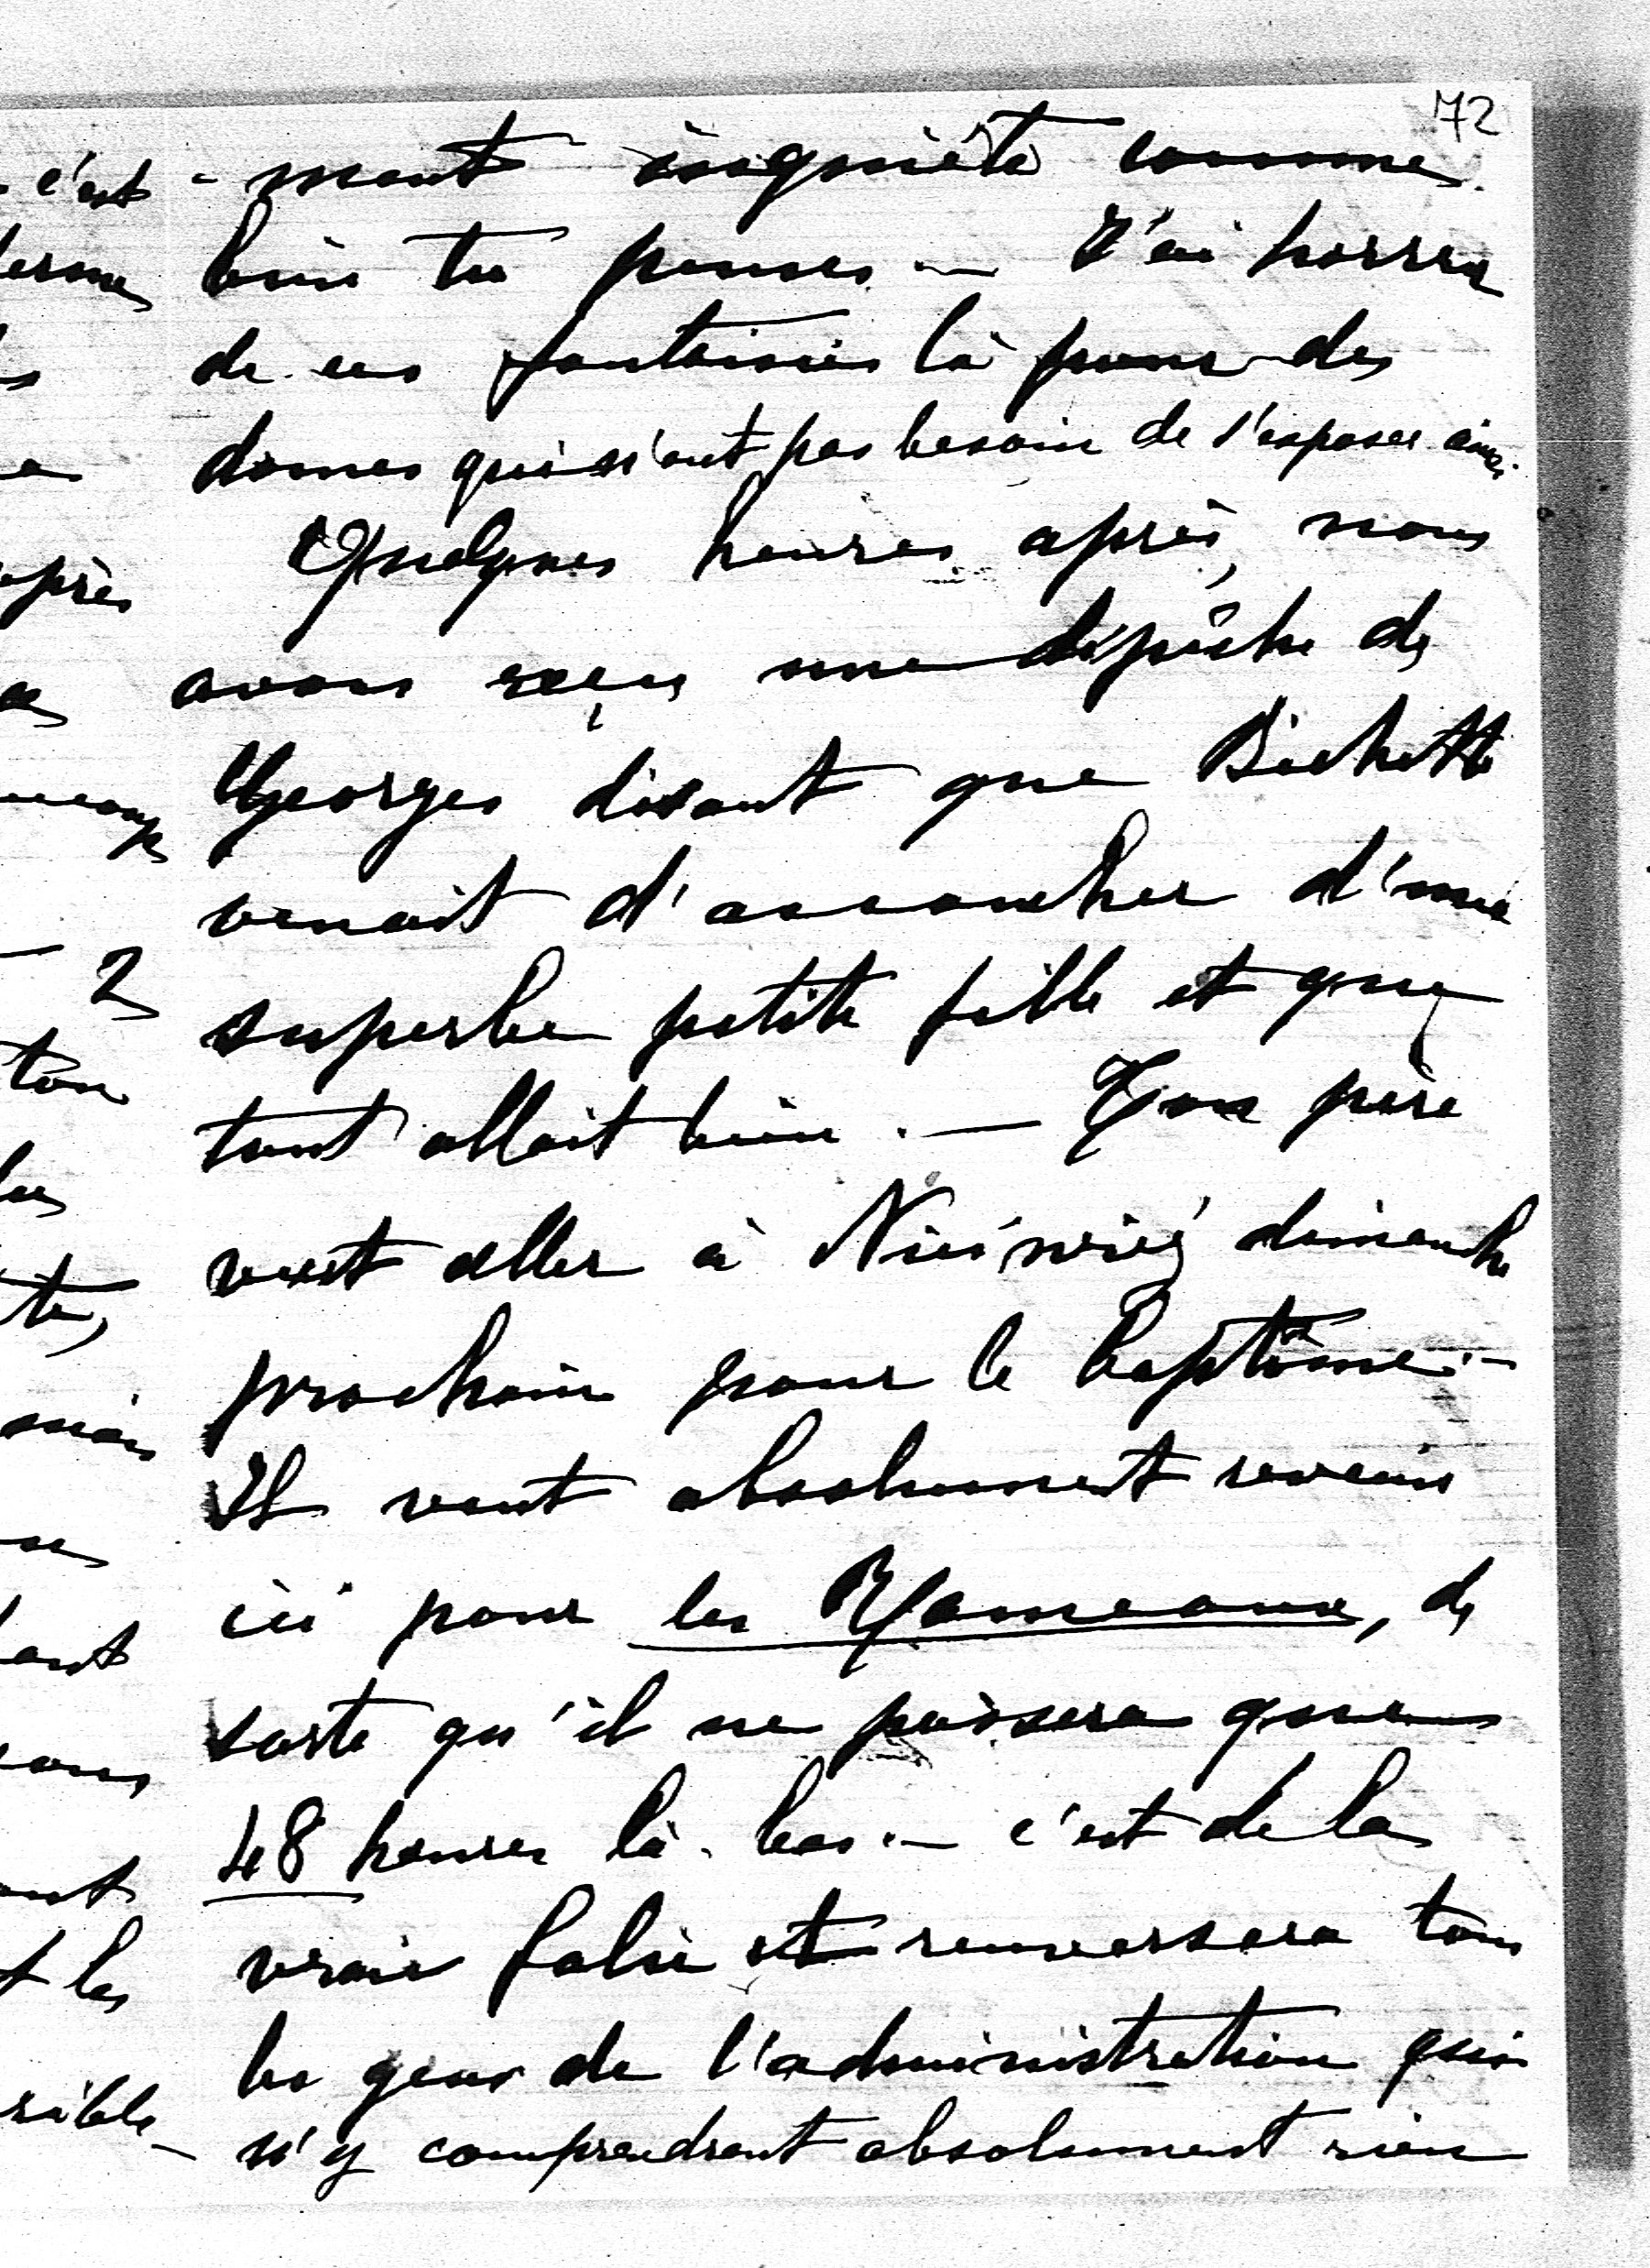 72
-ment inquiète comme
bien tu penses — J'ai horreur
de ces fantaisies là pour des
dames qui n'ont pas besoin de s'exposer ainsi.
Quelques heures après, nous
avons reçu une dépêche de
Georges disant que Bichette
venait d'accoucher d'une
superbe petite fille et que
tout allait bien. — Ton père
veut aller à dimanche
prochain pour le baptême. —
Il veut absolument revenir
ici pour les Rameaux, de
sorte qu'il ne passera que
48 heures là-bas. — c'est de la
vraie folie et renversera tous
les gens de l'administration qui
n'y comprendront absolument rien